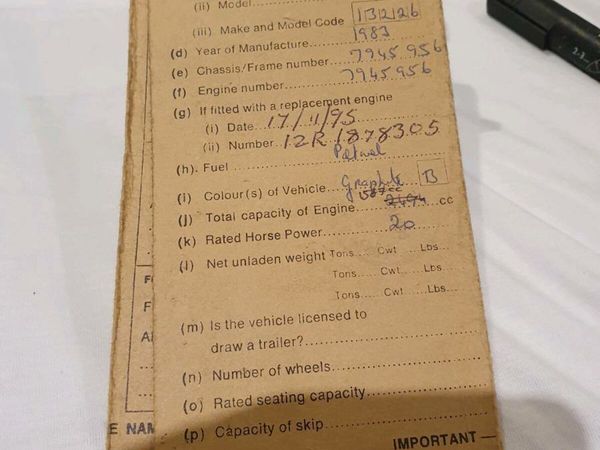 (ii) Model
(iii) Make and Model Code 132126
(d) Year of Manufacture 1983
(e) Chassis/Frame number 7945956
(f) Engine number 7945956
(g) If fitted with a replacement engine
(i) Date 17/11/95
(ii) Number 12R 1878305
(h). Fuel Petrol
(i) Colour(s) of Vehicle Graphite B
(j) Total capacity of Engine 1587cc cc
(k) Rated Horse Power 20
(l) Net unladen weight Tons Cwt Lbs
Tons Cwt Lbs
Tons Cwt Lbs
(m) Is the vehicle licensed to
draw a trailer?
(n) Number of wheels
(o) Rated seating capacity
(p) Capacity of skip
E NAM
IMPORTANT —